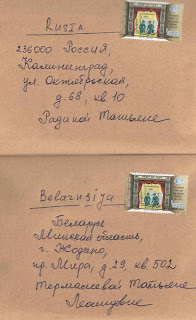 RUSIA
236000 Россия,
Калининград,
ул. Октябрьская,
д. 68, кв 10
Радикой Татьяне
Belarusija
Беларусь
Минская область,
г. Жодино,
пр. Мира, д. 29, кв. 502
Термаслевой Татьяне
Леонидовне